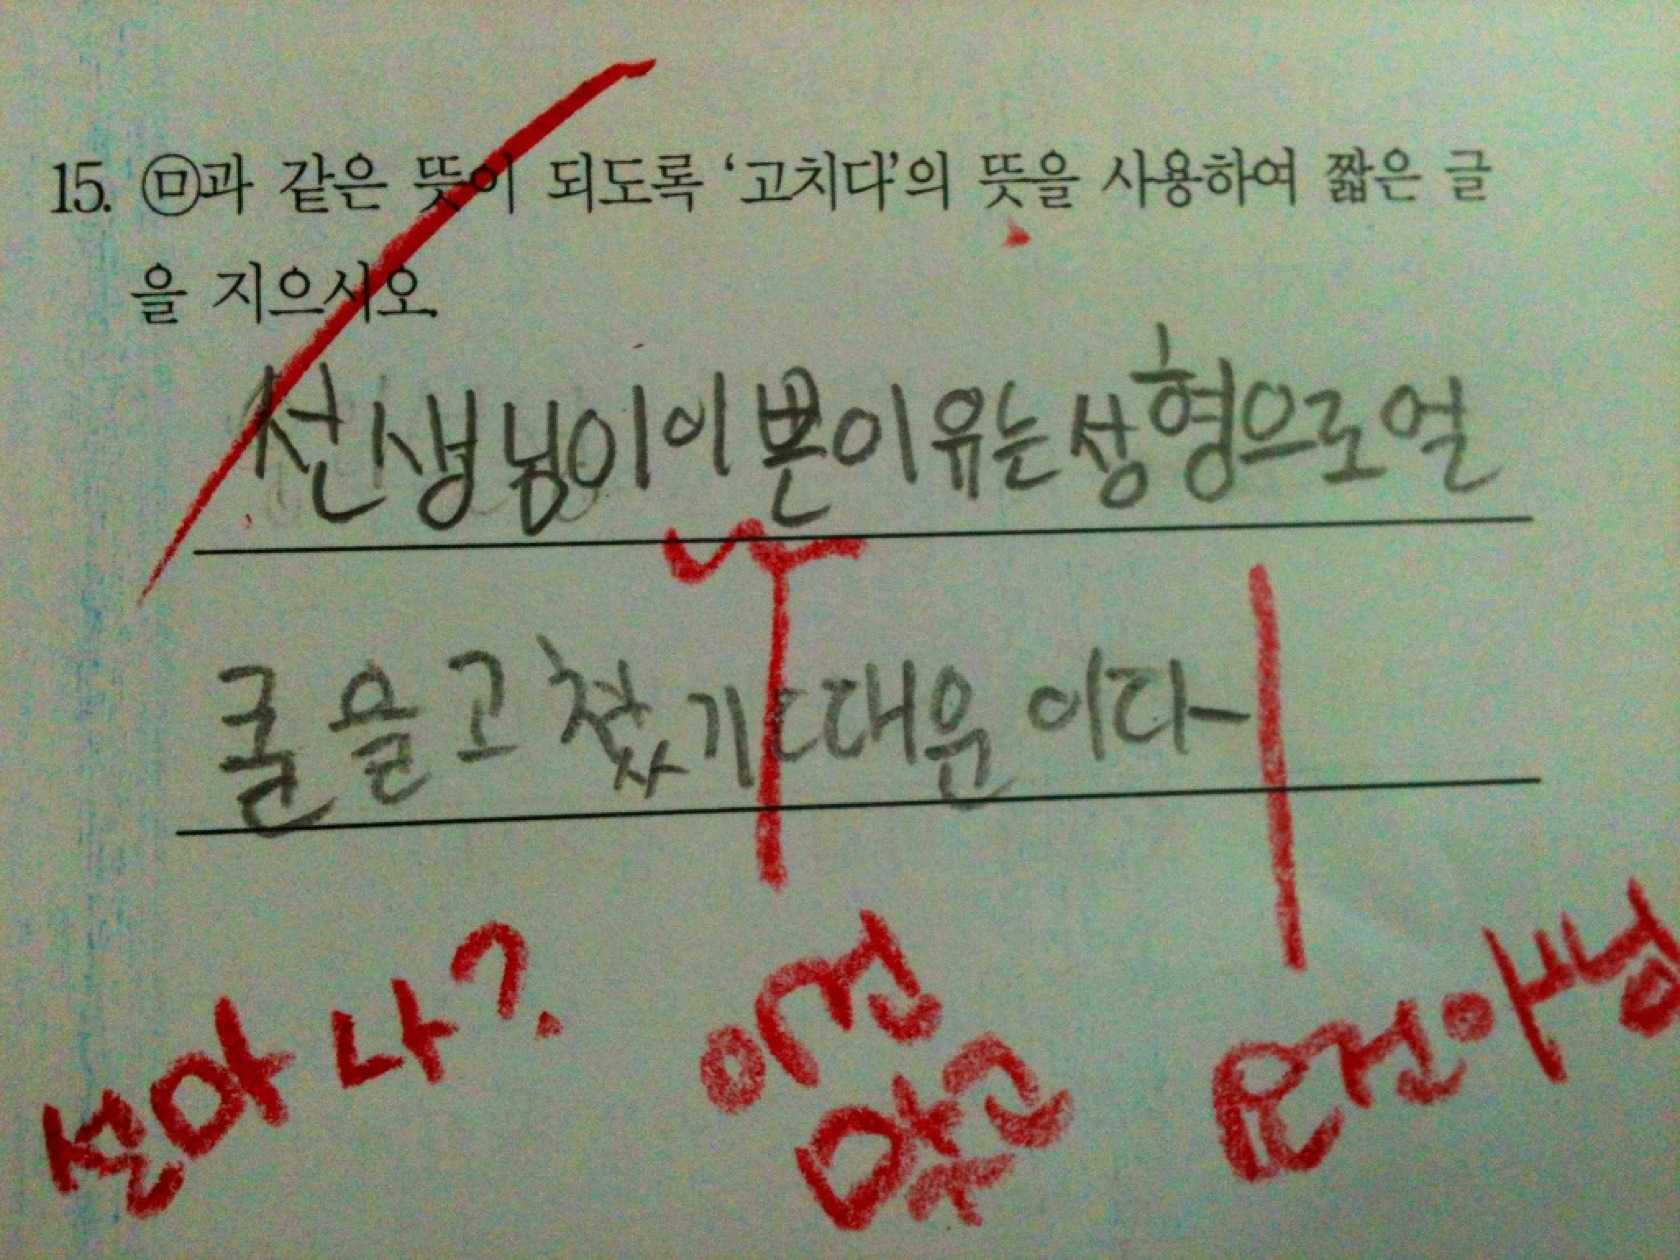 15. ㅁ과 같은 뜻이 되도록 ‘고치다’의 뜻을 사용하여 짧은 글
을 지으시오.
선생님이 이쁜이유는 성형으로 얼
굴을 고쳤기 때문이다
설마 나?
이건 맞고
요건 아님